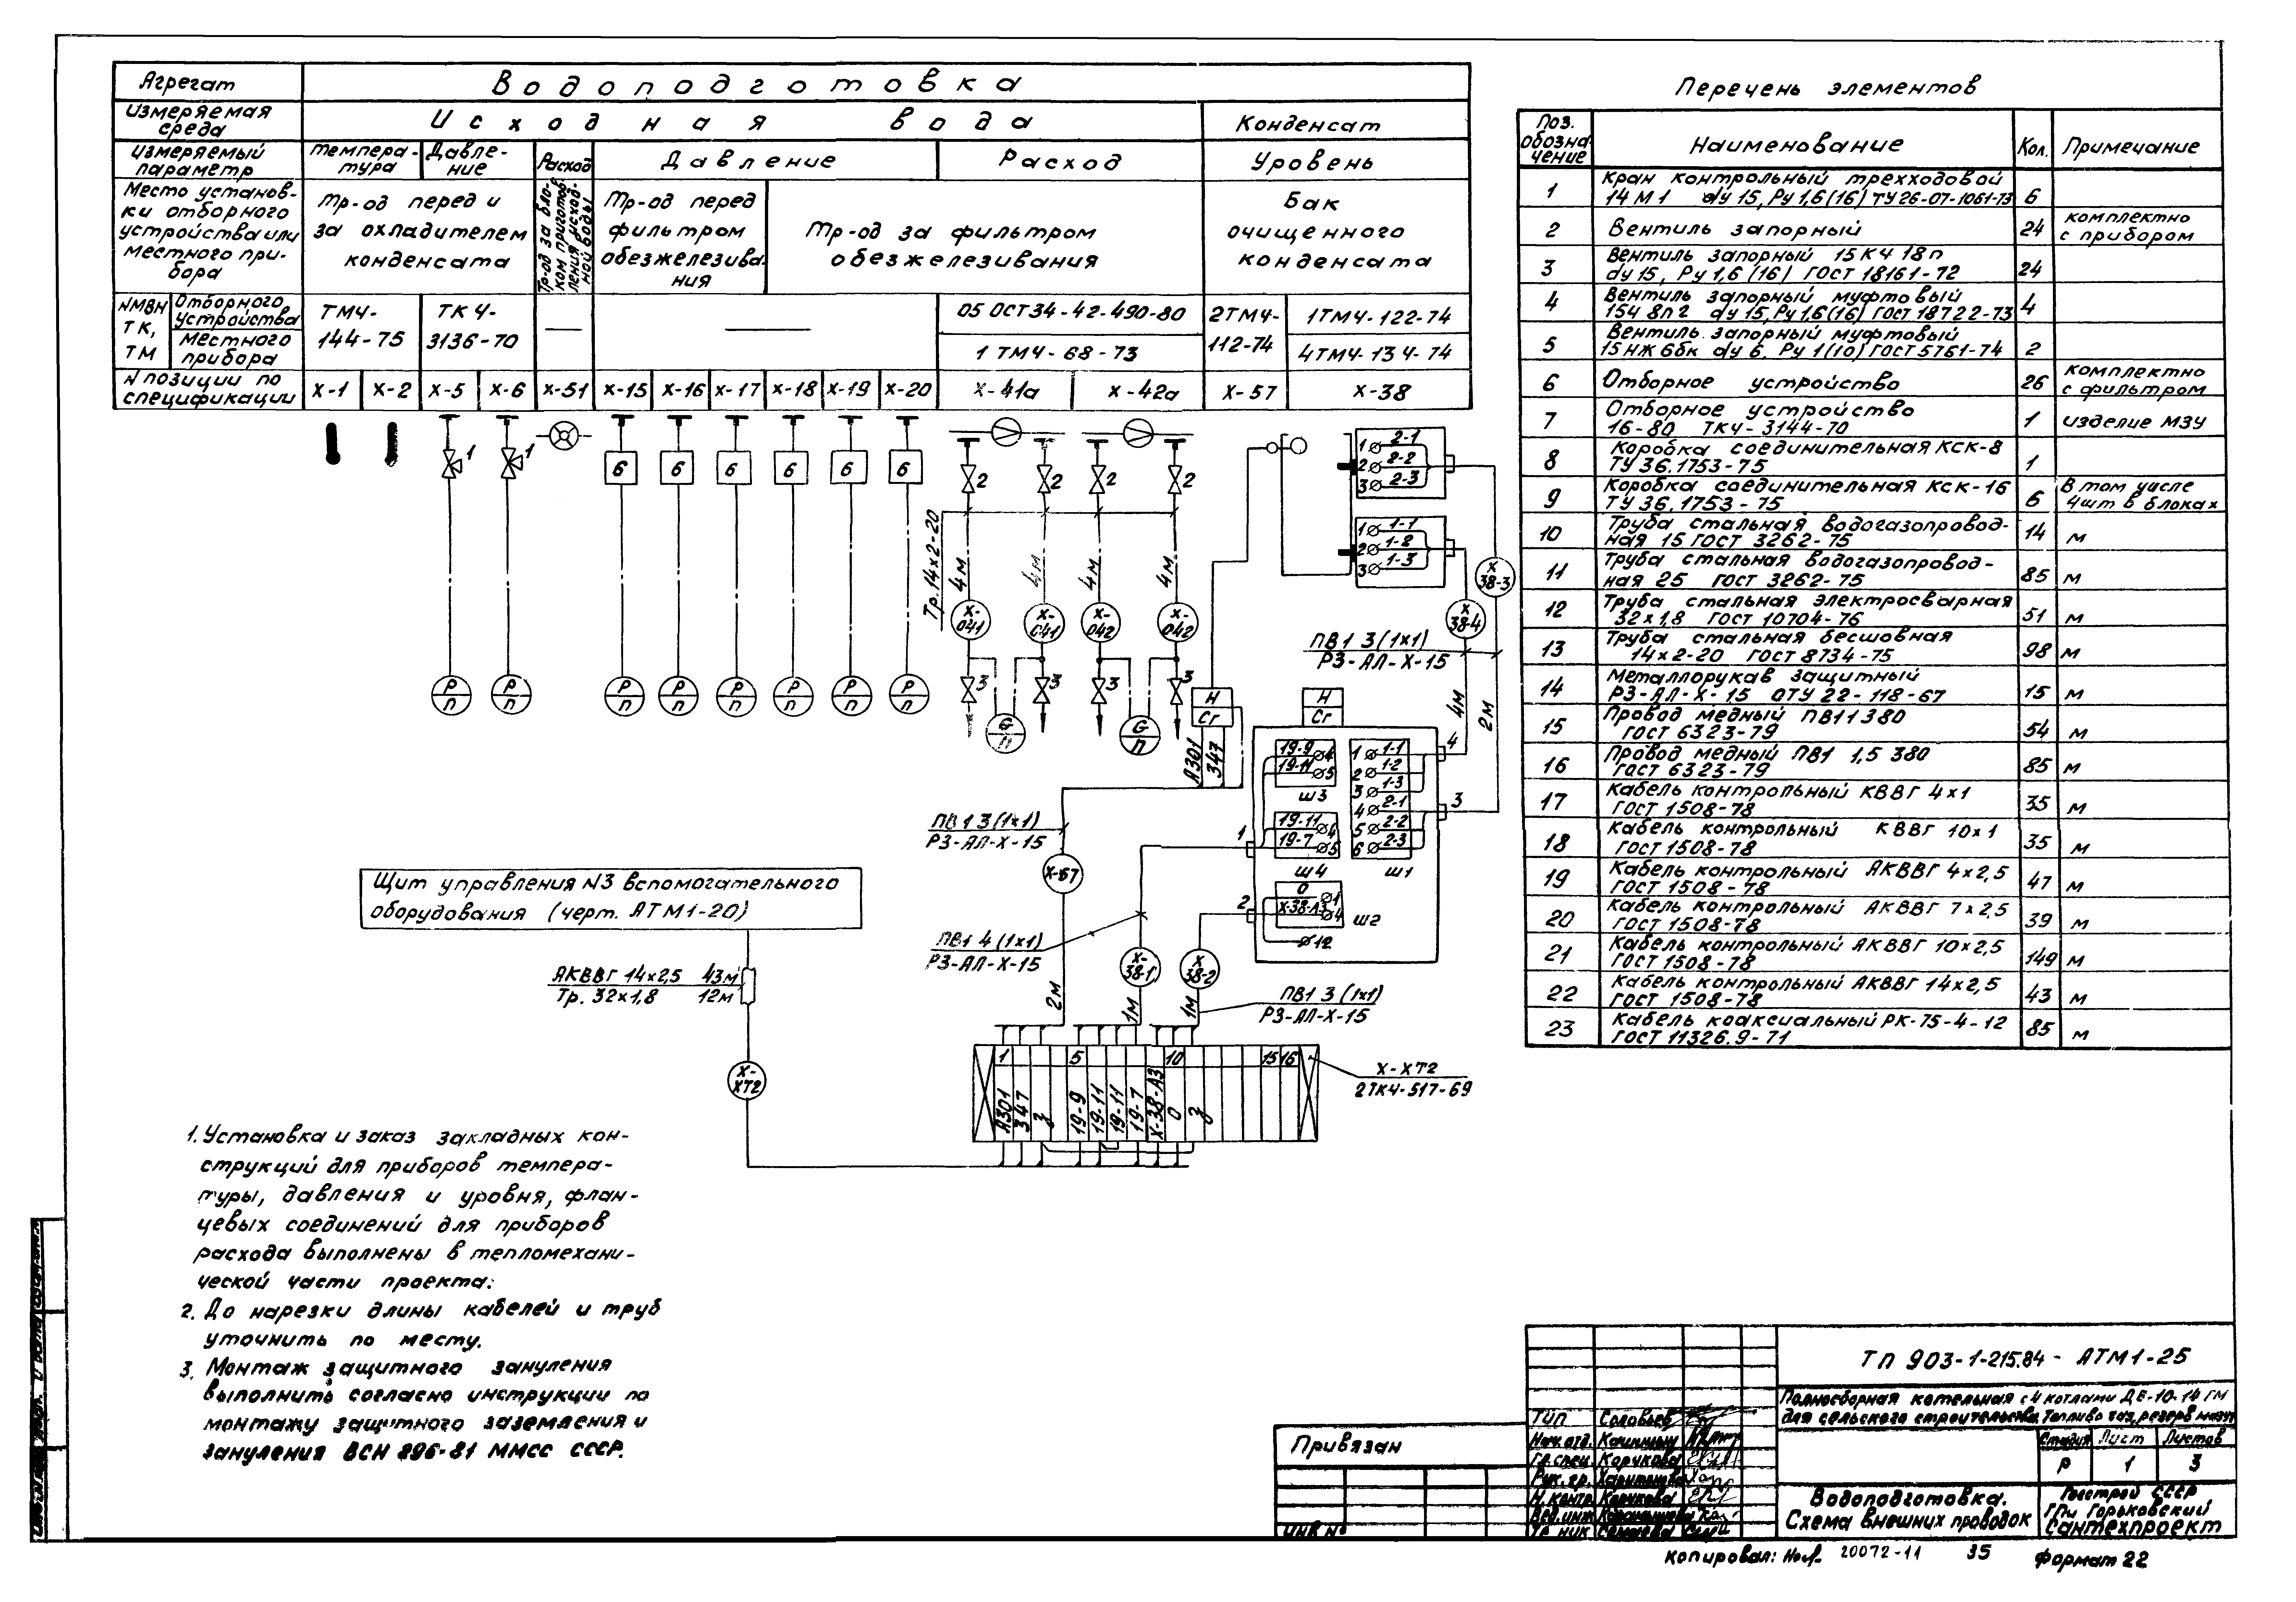 Агрегат
Водоподготовка
Измеряемая среда
Исходная вода
Конденсат
Измеряемый параметр
Темпера-
тура
Давле-
ние
Расход
Давление
Расход
Уровень
Место установ-
ки отборного
устройства или
местного при-
бора
Тр-од перед и
за охладителем
конденсата
Тр-од за бло-
ком приготов-
ления исход-
ной воды
Тр-од перед
фильтром
обезжелезива-
ния
Тр-од за фильтром
обезжелезивания
Бак
очищенного
конденсата
NМВН
ТК,
ТМ
Отборного
устройства
Местного
прибора
ТМ4-
144-75
ТК4-
3136-70
05 ОСТ34-42-490-80
1 ТМ4-68-73
2ТМ4-
112-74
1ТМ4-122-74
4ТМ4-134-74
N позиции по
спецификации
Х-1 Х-2 Х-5 Х-6 Х-51 Х-15 Х-16 Х-17 Х-18 Х-19 Х-20 Х-41а Х-42а Х-57 Х-38
1 1
6 6 6 6 6 6
2 2 2 2
Тр.14х2-20
4м 4м 4м 4м
Х-041 Х-041 Х-042 Х-042
3 3 3 3
Р П Р П Р П Р П Р П Р П Р П Р П
G П G П
1 2-1
2 2-2
3 2-3
1 1-1
2 1-2
3 1-3
Х 38-3
Х 38-4
ПВ1 3(1х1)
РЗ-АЛ-Х-15
4м 2м
Н Сг
Н Сг
А301 347
19-9 4
19-11 5
Ш3
19-11 4
19-7 5
Ш4
0 1
Х-38-А3 4
12
Ш2
1 1-1
2 1-2
3 1-3
4 2-1
5 2-2
6 2-3
Ш1
4
3
1
2
ПВ1 3(1х1)
РЗ-АЛ-Х-15
Х-57
ПВ1 4(1х1)
РЗ-АЛ-Х-15
Х-38-1
Х 38-2
2м 1м 1м
ПВ1 3(1х1)
РЗ-АЛ-Х-15
Щит управления N3 вспомогательного
оборудования (черт. АТМ1-20)
АКВВГ 14х2,5 43м
Тр. 32х1,8 12м
Х-ХТ2
1 5 10 15 16
А301 347 З 19-9 19-11 19-11 19-7 Х-38-А3 0 З
Х-ХТ2
27К4-517-69
1. Установка и заказ закладных кон-
струкций для приборов темпера-
туры, давления и уровня, флан-
цевых соединений для приборов
расхода выполнены в тепломехани-
ческой части проекта.
2. До нарезки длины кабелей и труб
уточнить по месту.
3. Монтаж защитного зануления
выполнить согласно инструкции по
монтажу защитного заземления и
зануления ВСН 296-81 ММСС СССР.
Перечень элементов
Поз. обозна-чение Наименование Кол. Примечание
1 Кран контрольный трехходовой
14М1 dу 15, Ру 1,6(16) ТУ26-07-1061-73 6
2 Вентиль запорный 24 комплектно с прибором
3 Вентиль запорный 15КЧ18п
dу 15, Ру 1,6 (16) ГОСТ 18161-72 24
4 Вентиль запорный муфтовый
15ч 8п2 dу 15, Ру 1,6(16) ГОСТ 18722-73 4
5 Вентиль запорный муфтовый
15НЖ 6бк dу 6. Ру 1(10) ГОСТ 5761-74 2
6 Отборное устройство 26 комплектно с фильтром
7 Отборное устройство
16-80 ТК4-3144-70 1 изделие МЗУ
8 Коробка соединительная КСК-8
ТУ 36.1753-75 1
9 Коробка соединительная КСК-16
ТУ 36.1753-75 6 В том числе 4шт в блоках
10 Труба стальная водогазопровод-
ная 15 ГОСТ 3262-75 14 м
11 Труба стальная водогазопровод-
ная 25 ГОСТ 3262-75 85 м
12 Труба стальная электросварная
32х1,8 ГОСТ 10704-76 51 м
13 Труба стальная бесшовная
14х2-20 ГОСТ 8734-75 98 м
14 Металлорукав защитный
РЗ-АЛ-Х-15 ОТУ 22-118-67 15 м
15 Провод медный ПВ1 1 380
ГОСТ 6323-79 54 м
16 Провод медный ПВ1 1,5 380
ГОСТ 6323-79 85 м
17 Кабель контрольный КВВГ 4х1
ГОСТ 1508-78 35 м
18 Кабель контрольный КВВГ 10х1
ГОСТ 1508-78 35 м
19 Кабель контрольный АКВВГ 4х2,5
ГОСТ 1508-78 47 м
20 Кабель контрольный АКВВГ 7х2,5
ГОСТ 1508-78 39 м
21 Кабель контрольный АКВВГ 10х2,5
ГОСТ 1508-78 149 м
22 Кабель контрольный АКВВГ 14х2,5
ГОСТ 1508-78 43 м
23 Кабель коаксиальный РК-75-4-12
ГОСТ 11326.9-71 85 м
ТП 903-1-215.84 - АТМ1-25
Полносборная котельная с 4 котлами ДЕ-10-14 ГМ
для сельского строительства. Топливо газ, резерв мазут
ГИП Соловьев
Нач. отд.
Гл. спец. Корчкова
Рук. гр.
Н. контр. Корчкова
Вед. инж.
Стадия Лист Листов
Р 1 3
Водоподготовка.
Схема внешних проводок
Госстрой СССР
ГПИ Горьковский
Сантехпроект
Привязан
ИНВ №
Копировал: 20072-11 35 Формат 22